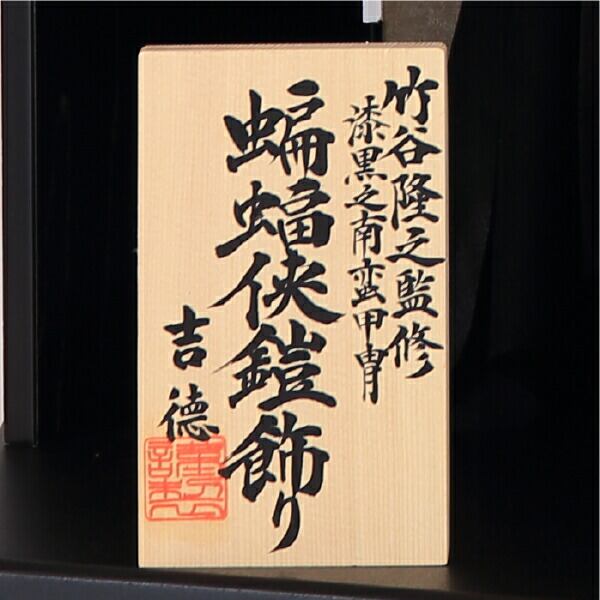 竹谷隆之監修
漆黒之南蛮甲冑
蝙蝠侠鎧飾り
吉德